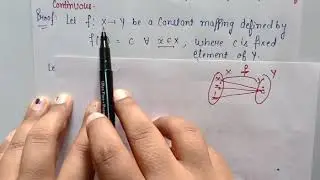 Continuous.
Proof: Let f: X → Y be a Constant mapping defined by
= c ∀ x ∈ X, where c is fixed
element of Y.
X f Y